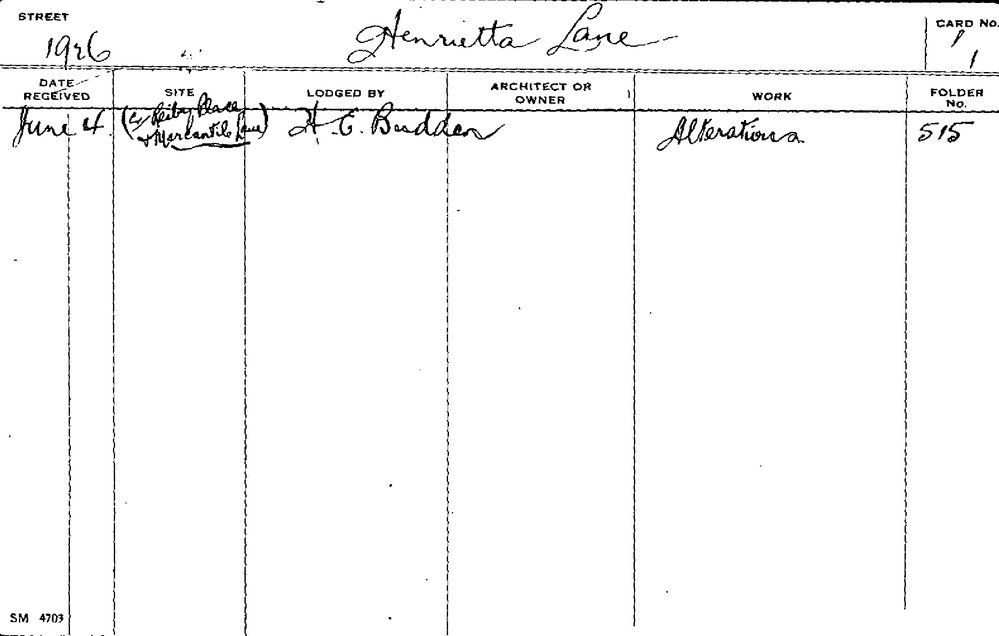 STREET
Henrietta Lane
CARD No.
1926
1
DATE RECEIVED
SITE
LODGED BY
ARCHITECT OR OWNER
WORK
FOLDER No.
June 4.
(Cr Reiby Place
& Mercantile Lane)
H. E. Budden
Alterations
515
SM 4703